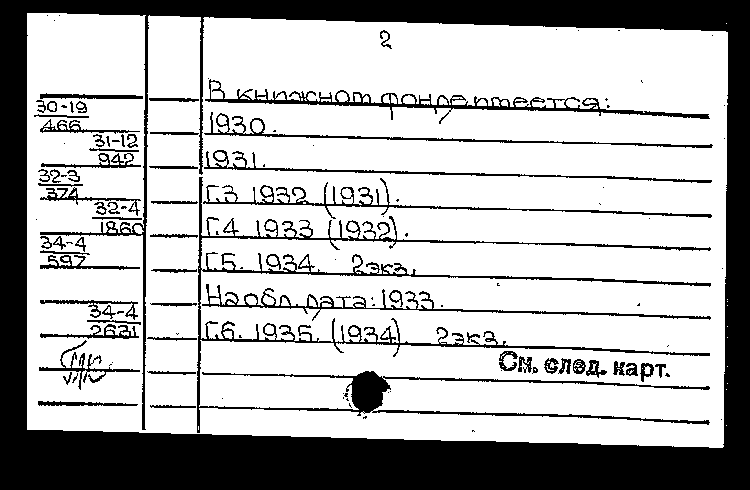 2
В книжном фонде имеется:
30-19
466
1930.
31-12
942
1931.
32-3
374
Г.3 1932 (1931).
32-4
1860
Г.4 1933 (1932).
34-4
597
Г.5. 1934. 2экз.
На обл. дата: 1933.
34-4
2631
Г.6. 1935. (1934). 2экз.
См. след. карт.